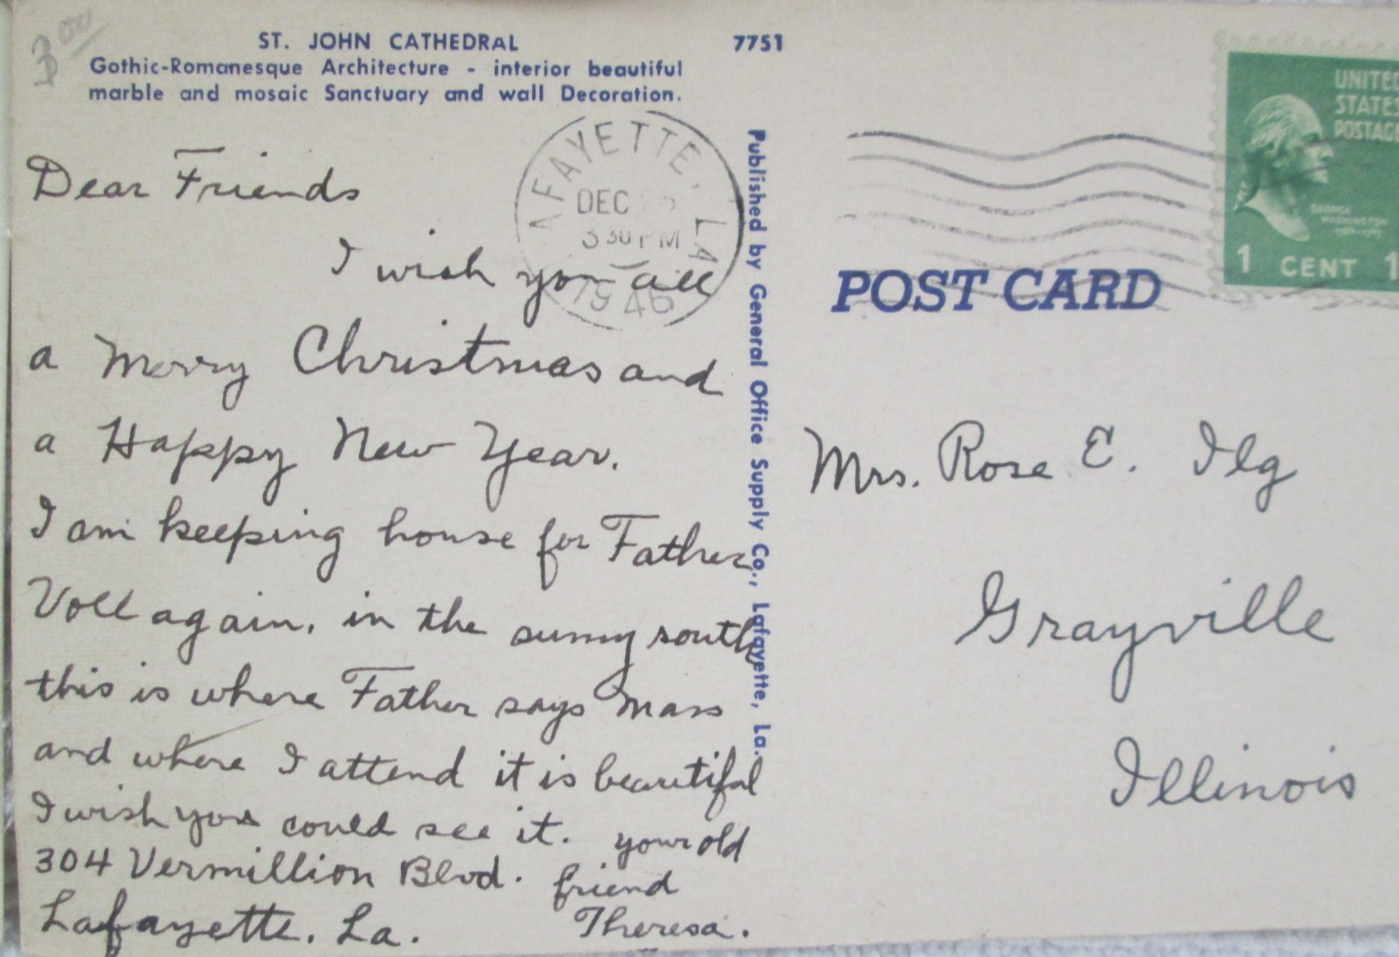 3.00
ST. JOHN CATHEDRAL
Gothic-Romanesque Architecture - interior beautiful
marble and mosaic Sanctuary and wall Decoration.
7751
Dear Friends
I wish you all
a Merry Christmas and
a Happy New Year.
I am keeping house for Father
Voll again, in the sunny south
this is where Father says Mass
and where I attend it is beautiful
I wish you could see it. your old
friend
Theresa.
304 Vermillion Blvd.
Lafayette, La.
AFAYETTE, LA
DEC
3 30 PM
1946
Published by General Office Supply Co., Lafayette, La.
UNITED
STATES
POSTAG
GEORGE
WASHINGTON
1 CENT 1
POST CARD
Mrs. Rose E. Ilg
Grayville
Illinois